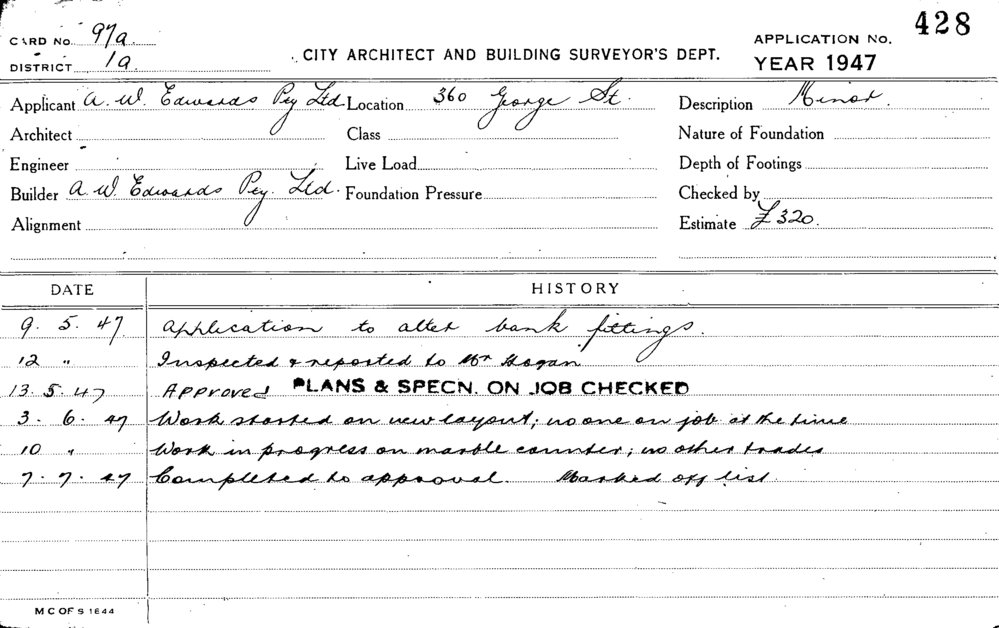 CARD No. 97a.
DISTRICT 1a
CITY ARCHITECT AND BUILDING SURVEYOR'S DEPT.
APPLICATION No. 428
YEAR 1947
Applicant A. W. Edwards Pty Ltd Location 360 George St. Description Minor.
Architect Class Nature of Foundation
Engineer Live Load Depth of Footings
Builder A. W. Edwards Pty. Ltd. Foundation Pressure Checked by
Alignment Estimate £320.
DATE HISTORY
9. 5. 47. Application to alter bank fittings.
12 " Inspected & reported to Mr Hogan
13. 5. 47 Approved PLANS & SPECN. ON JOB CHECKED
3. 6. 47 Work started on new layout; no one on job at the time
10 " Work in progress on marble counter; no other trades
7. 7. 47 Completed to approval. Marked off list.
M C OF S 1644